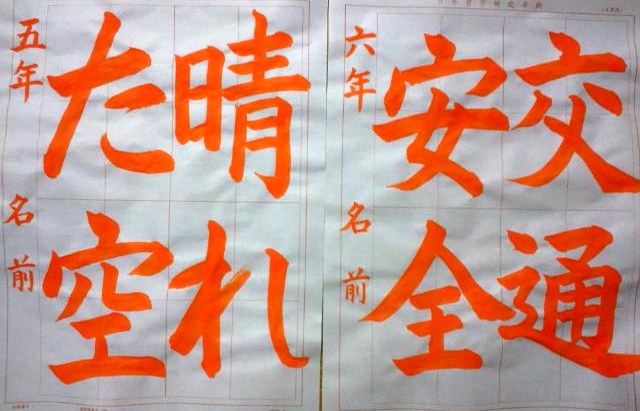 交通
安全
六年 名前
晴れ
た空
五年 名前